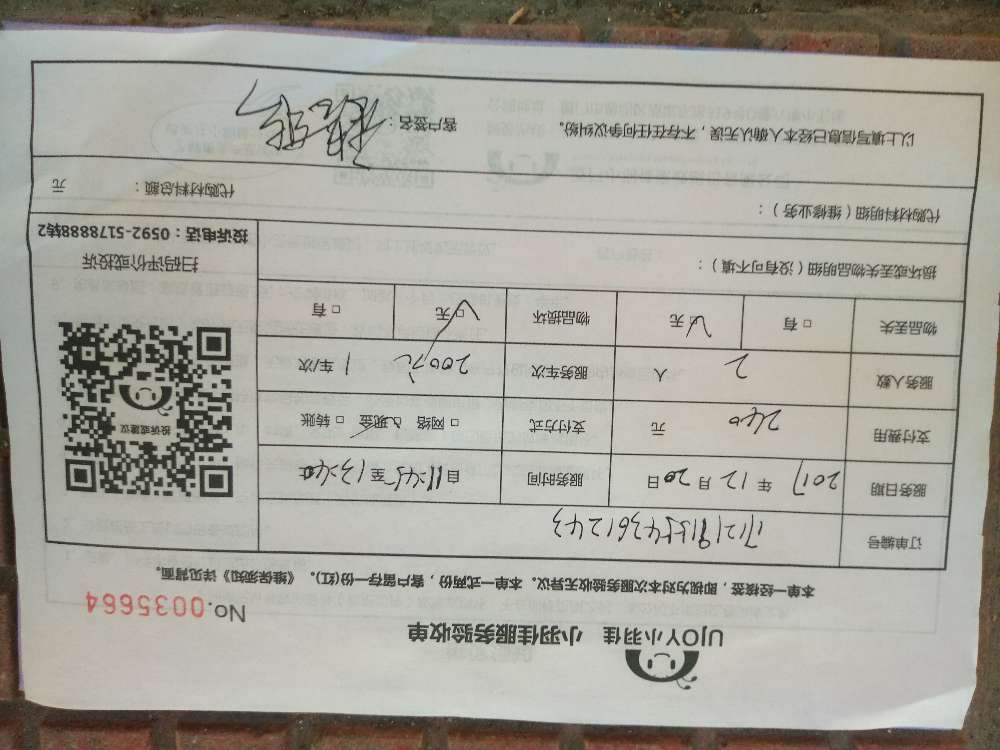 UJOY小羽佳 小羽佳服务验收单
No.0035664
本单一经核签，即视为对本次服务验收无异议。本单一式两份，客户留存一份(红)。《维保须知》详见背面。
订单编号
服务日期 2017 年 12 月 20 日 服务时间 自 11:45 至 13:40
支付费用 240 元 支付方式 □ 网络 □ 现金 □ 转账
服务人数 2 人 服务车次 200元 车/次
物品丢失 □ 有 □ 无 物品损坏 □ 无 □ 有
投诉或建议
扫码评价或投诉
投诉电话：0592-5178888转2
损坏或丢失物品明细（没有可不填）：
代购材料明细（维修业务）： 代购材料总额： 元
以上填写信息已经本人确认无误，不存在任何争议纠纷。 客户签名：